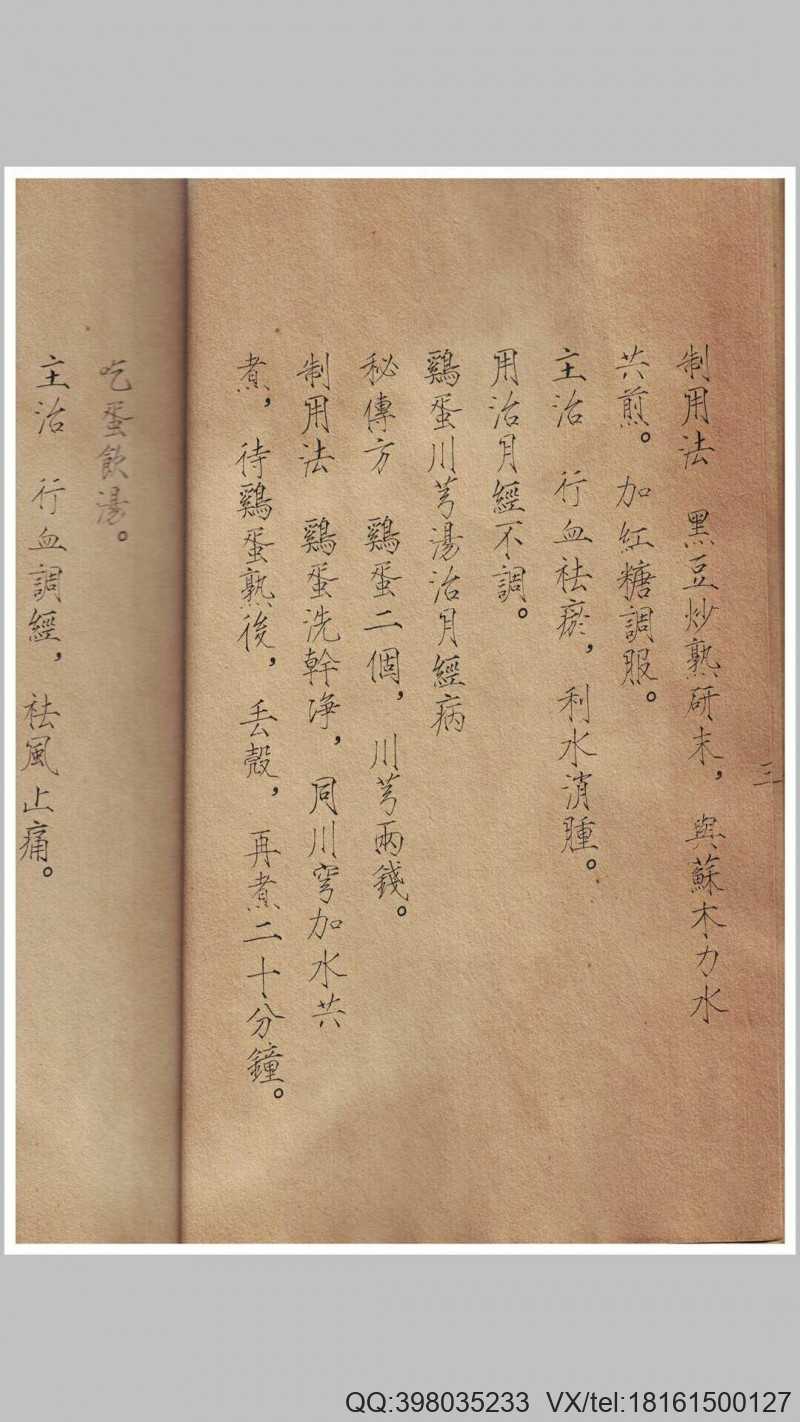 三
制用法 黑豆炒熟研末，與蘇木力水
共煎。加紅糖調服。
主治 行血祛瘀，利水消腫。
用治月經不調。
鷄蛋川芎湯治月經病
秘傳方 鷄蛋二個，川芎兩錢。
制用法 鷄蛋洗幹净，同川穹加水共
煮，待鷄蛋熟後，丢殻，再煮二十分鐘。
吃蛋飲湯。
主治 行血調經，祛風止痛。
QQ:398035233 VX/tel:18161500127